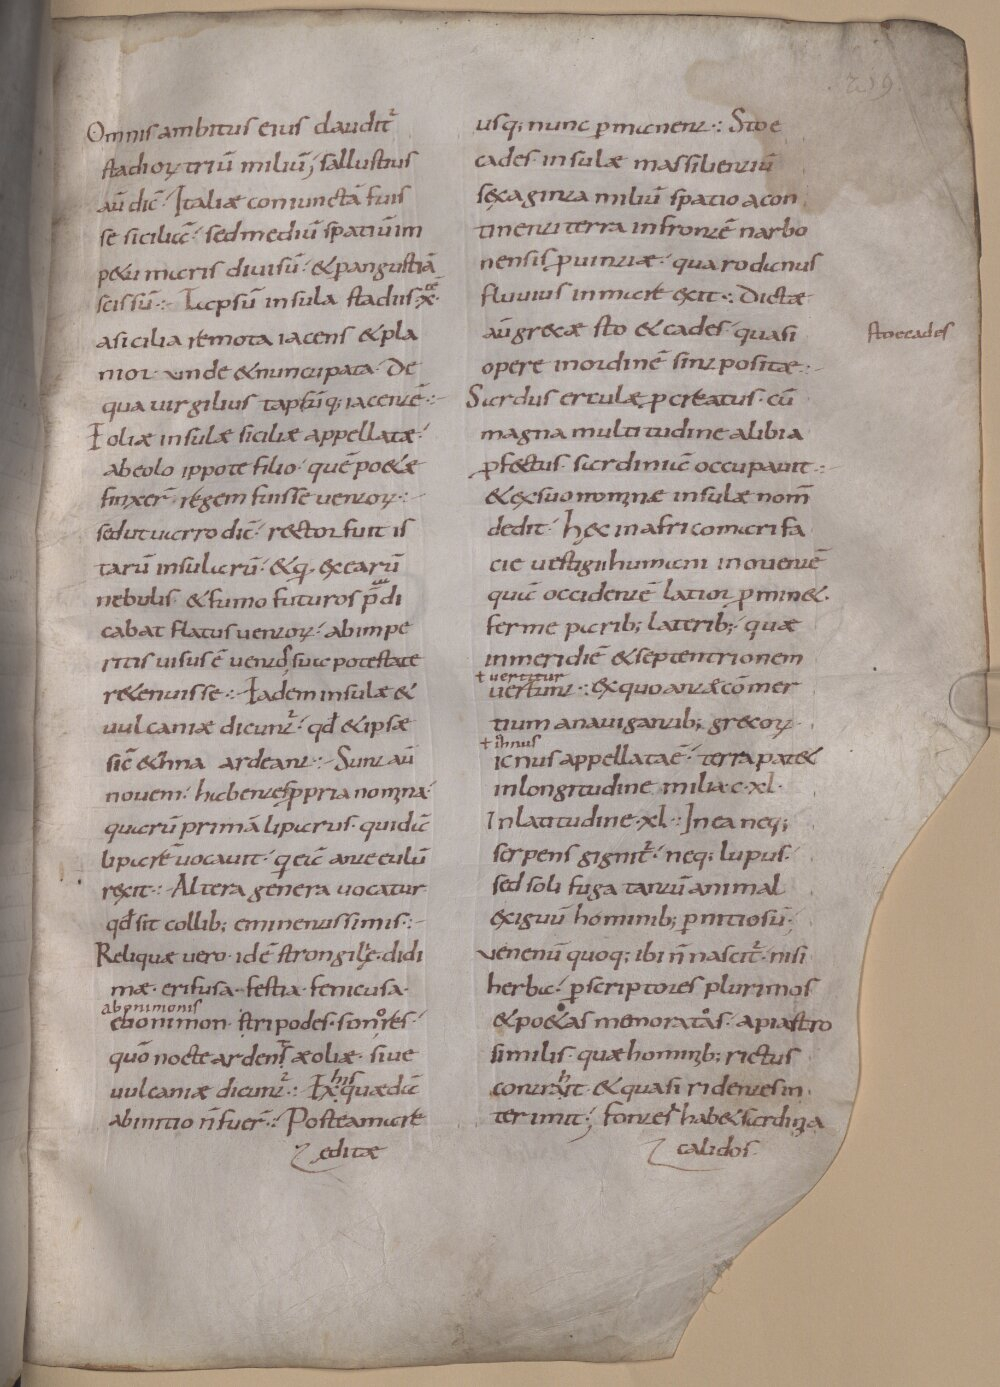 219.
Omnis ambitus eius claudit᷑
stadioꝝ triū miliū; sallustius
aū dic̄· Italiae coniunctā fuis
se siciliā· sed mediū spatiū im
petu maris divisū· & p angustiā
scissū:· Tapsū insula stadiis ·x̄·
a sicilia remota iacens & pla
nior unde & nuncupata· De
qua virgilius tapsūq; iacentē:·
Ioliae insulae siciliae appellatae·
ab eolo ippote filio· quē poetae
finxer̄ regem fuisse ventoꝝ:·
sed ut varro dic̄· rector fuit is
tarū insularū· & q̣ ex earū
nebulis & fumo futuros p̄di
cabat flatus ventoꝝ· ab impe
ritis visus ē ventos sua potestate
retenuisse:· Iadem insulae &
vulcaniae dicunt᷑· qđ & ipsae
sic̄ & hna ardeant:· Sunt aū
novem· habentes ꝓpria nomina·
quarū primā liparus· quidā
liparē vocavit· q eā ante eulū
rexit:· Altera genera vocatur
qđ sit collib; eminentissimis:·
Reliquae vero· idē strongile· didi
mae· erifusa· festia· fenicusa·
abonimonis
etionimon· stripodes· sonores·
quō nocte ardent aeoliae· sive
vulcaniae dicunt᷑:· Ex his quaedā
ab initio n̄ fuer̄:· Postea mare
editae
usq; nunc ꝑmanent:· Stoe
cades insulae massilientiū
sexaginta miliū spatio a con
tinenti terra in frontē narbo
nensis ꝓvintiae· qua rodanus
fluvius in mare exit:· Dictae
aū grecae stoecades quasi
opere in ordinē sint positae:·
Sardus erculae ꝓcreatus· cū
magna multitudine a libia
ꝓfectus· sardiniā occupavit:·
& ex suo nomine insulae nom̄
dedit· hec in africo mari fa
cie vestigii humani in orientē
quā occidentē latior ꝓminet·
ferme parib; laterib;· quae
in meridiē & septentrionem
ł vertitur
vertunt:· ex quo ante cōmer
tium a navigantib; grecoꝝ·
ł ihnus
icnus appellata ē· terra patet
in longitudine milia c·xl·
In latitudine ·xl:· In ea neq;
serpens gignit᷑· neq; lupus·
sed solifuga tantū animal
exiguū hominib; ꝑnitiosū·
venenū quoq; ibi n̄ nascit᷑· nisi
herba· ꝑ scriptores plurimos
& poetas memoratas· apiastro
similis· quae hominib; rictus
contrahit· & quasi ridentes in
terimit; fontes habet sardinia
calidos·
stoecades